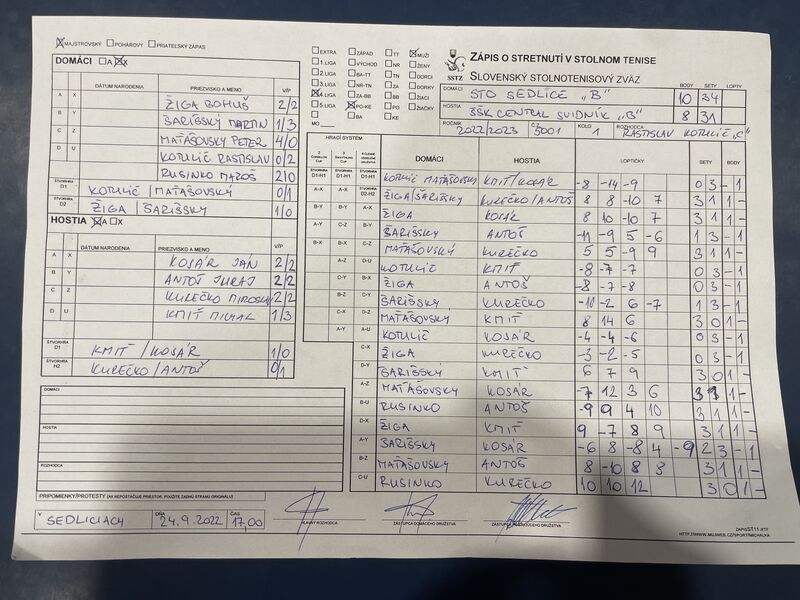 MAJSTROVSKÝ POHÁROVÝ PRIATEĽSKÝ ZÁPAS
DOMÁCI A X
DÁTUM NARODENIA PRIEZVISKO A MENO V/P
A X ŽIGA BOHUŠ 2/2
B Y ŠARIŠSKÝ MARTIN 1/3
C Z MAŤAŠOVSKÝ PETER 4/0
D U KOTULIČ RASTISLAV 0/2
RUSINKO MAROŠ 2/0
ŠTVORHRA D1 KOTULIČ / MAŤAŠOVSKÝ 0/1
ŠTVORHRA D2 ŽIGA / ŠARIŠSKÝ 1/0
HOSTIA A X
DÁTUM NARODENIA PRIEZVISKO A MENO V/P
A X KOSÁR JÁN 2/2
B Y ANTOŠ JURAJ 2/2
C Z KUREČKO MIROSLAV 2/2
D U KMIŤ MICHAL 1/3
ŠTVORHRA D1 KMIŤ / KOSÁR 1/0
ŠTVORHRA H2 KUREČKO / ANTOŠ 0/1
DOMÁCI
HOSTIA
ROZHODCA
PRIPOMIENKY/PROTESTY (AK NEPOSTAČUJE PRIESTOR, POUŽITE ZADNÚ STRANU ORIGINÁLU)
V SEDLICIACH DŇA 24.9.2022 ČAS 17,00
HLAVNÝ ROZHODCA ZÁSTUPCA DOMÁCEHO DRUŽSTVA ZÁSTUPCA HOSŤUJÚCEHO DRUŽSTVA
EXTRA ZÁPAD TT MUŽI
1.LIGA VÝCHOD NR ŽENY
2.LIGA BA-TT TN DORCI
3.LIGA NR-TN ZA DORKY
4.LIGA ZA-BB BB ŽIACI
5.LIGA PO-KE PO ŽIAČKY
MO BA KE
SSTZ
ZÁPIS O STRETNUTÍ V STOLNOM TENISE
SLOVENSKÝ STOLNOTENISOVÝ ZVÄZ
BODY SETY LOPTY
DOMÁCI STO SEDLICE "B" 10 34
HOSTIA ŠŠK CENTRAL SVIDNÍK "B" 8 31
ROČNÍK 2022/2023 Č. 5001 KOLO 1 ROZHODCA RASTISLAV KOTULIČ "C"
HRACÍ SYSTÉM
DOMÁCI HOSTIA LOPTIČKY SETY BODY
D1-H1 D1-H1 ŠTVORHRA D1-H1 KOTULIČ MAŤAŠOVSKÝ KMIŤ/KOSÁR -8 -14 -9 0 3 - 1
A-X A-X ŠTVORHRA D2-H2 ŽIGA/ŠARIŠSKÝ KUREČKO/ANTOŠ 8 8 -10 7 3 1 1 -
B-Y B-Y A-X ŽIGA KOSÁR 8 10 -10 7 3 1 1 -
A-Y C-Z B-Y ŠARIŠSKÝ ANTOŠ -11 -9 5 -6 1 3 - 1
B-X B-X C-Z MAŤAŠOVSKÝ KUREČKO 5 5 -9 9 3 1 1 -
A-Z D-U KOTULIČ KMIŤ -8 -7 -7 0 3 - 1
C-Y B-X ŽIGA ANTOŠ -8 -7 -8 0 3 - 1
B-Z C-Y ŠARIŠSKÝ KUREČKO -10 -2 6 -7 1 3 - 1
C-X D-Z MAŤAŠOVSKÝ KMIŤ 8 14 6 3 0 1 -
A-Y A-U KOTULIČ KOSÁR -4 -4 -6 0 3 - 1
C-X ŽIGA KUREČKO -3 -2 -5 0 3 - 1
D-Y ŠARIŠSKÝ KMIŤ 6 7 9 3 0 1 -
A-Z MAŤAŠOVSKÝ KOSÁR -7 12 3 6 3 1 1 -
B-U RUSINKO ANTOŠ -9 9 4 10 3 1 1 -
D-X ŽIGA KMIŤ 9 -7 8 9 3 1 1 -
A-Y ŠARIŠSKÝ KOSÁR -6 8 -8 4 -9 2 3 - 1
B-Z MAŤAŠOVSKÝ ANTOŠ 8 -10 8 8 3 1 1 -
C-U RUSINKO KUREČKO 10 10 12 3 0 1 -
ZAPISST11.RTF
HTTP://WWW.MUJWEB.CZ/SPORT/MICHALKA